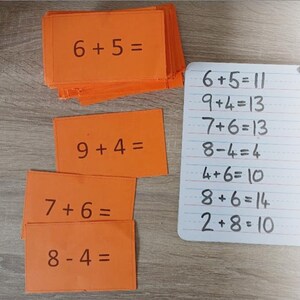 6 + 5 =
9 + 4 =
7 + 6 =
8 - 4 =
6+5=11
9+4=13
7+6=13
8-4=4
4+6=10
8+6=14
2+8=10